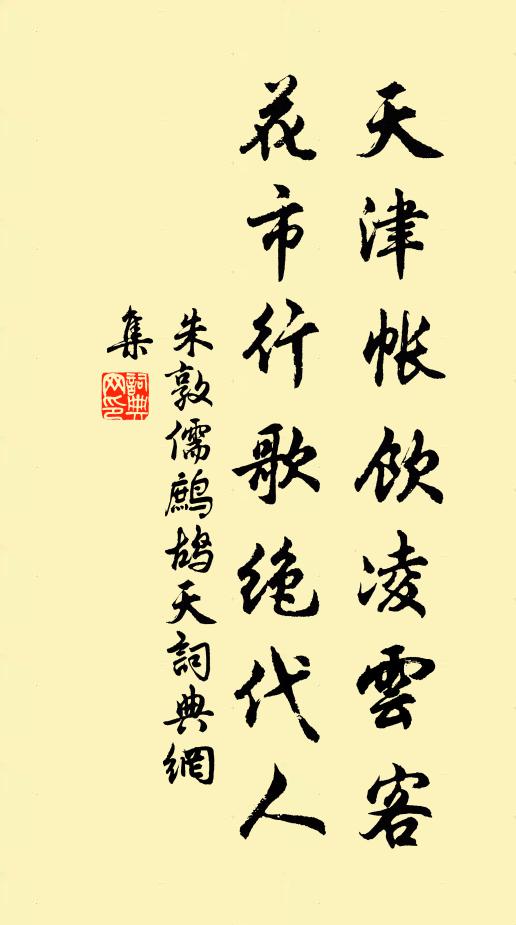 天津帐饮凌雲客
花市行歌绝代人
朱敦儒鹧鸪天詞典網
集
詞典
网印